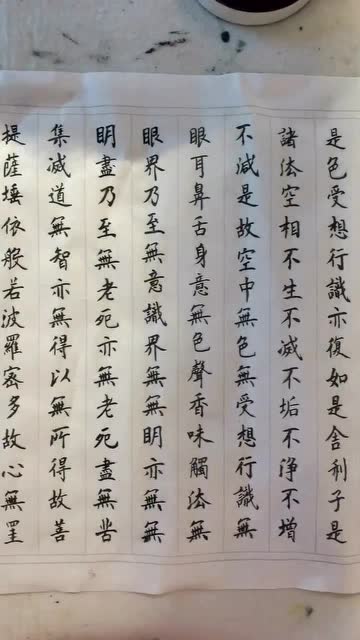 是色受想行識亦復如是舍利子是
諸法空相不生不滅不垢不淨不增
不減是故空中無色無受想行識無
眼耳鼻舌身意無色聲香味觸法無
眼界乃至無意識界無無明亦無無
明盡乃至無老死亦無老死盡無苦
集滅道無智亦無得以無所得故菩
提薩埵依般若波羅蜜多故心無罣